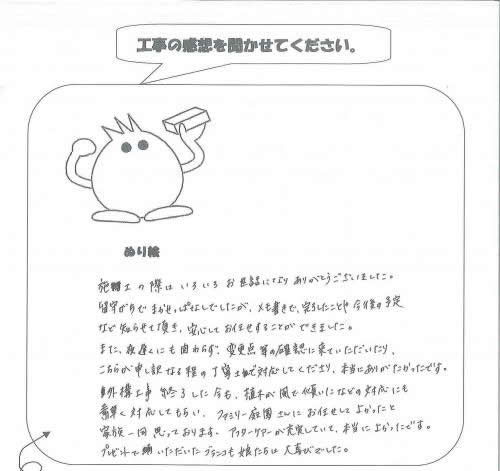 工事の感想を聞かせてください。
ぬり絵
施工の際はいろいろお世話になりありがとうございました。
留守がちでまかせっぱなしでしたが、メモ書きで、完了したことや今後の予定
など知らせて頂き、安心してお任せすることができました。
また、夜遅くにも関わらず、変更点等の確認に来ていただいたり、
こちらが申し訳なる程の丁寧さで対応してくださり、本当にありがたかったです。
外構工事終了した今も、植木が風で傾いたなどの対応にも
素早く対応してもらい、ファミリー庭園さんにお任せしてよかったと
家族一同思っております。アフターケアーが充実していて、本当によかったです。
プレゼントで頂いたブランコも娘たちは大喜びでした。